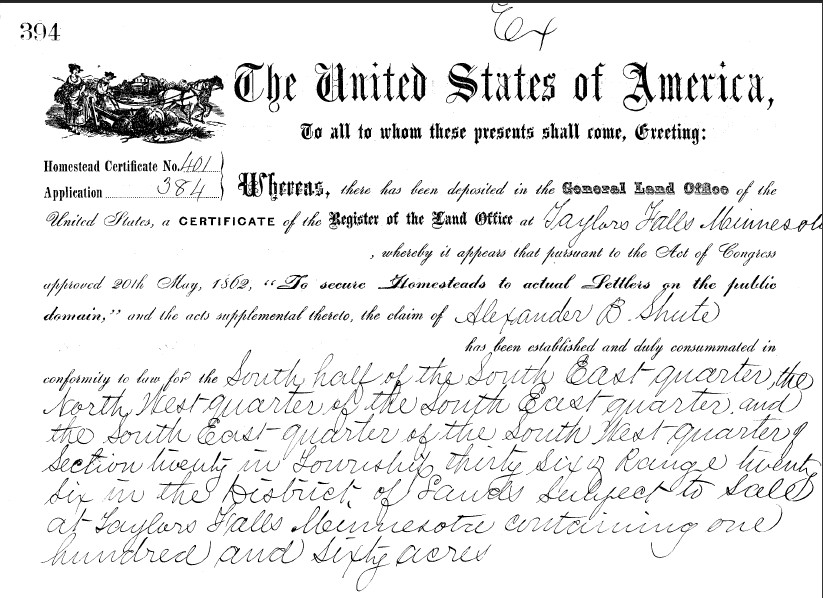 394
Ex
The United States of America,
To all to whom these presents shall come, Greeting:
Homestead Certificate No. 401
Application 384
Whereas, there has been deposited in the General Land Office of the
United States, a CERTIFICATE of the Register of the Land Office at Taylors Falls Minnesota
, whereby it appears that pursuant to the Act of Congress
approved 20th May, 1862, “To secure Homesteads to actual Settlers on the public
domain,” and the acts supplemental thereto, the claim of Alexander B. Shute
has been established and duly consummated in
conformity to law for the South half of the South East quarter, the
North West quarter of the South East quarter, and
the South East quarter of the South West quarter of
Section twenty in Township thirty six of Range twenty
six in the District of Lands subject to Sale
at Taylors Falls Minnesota containing one
hundred and sixty acres